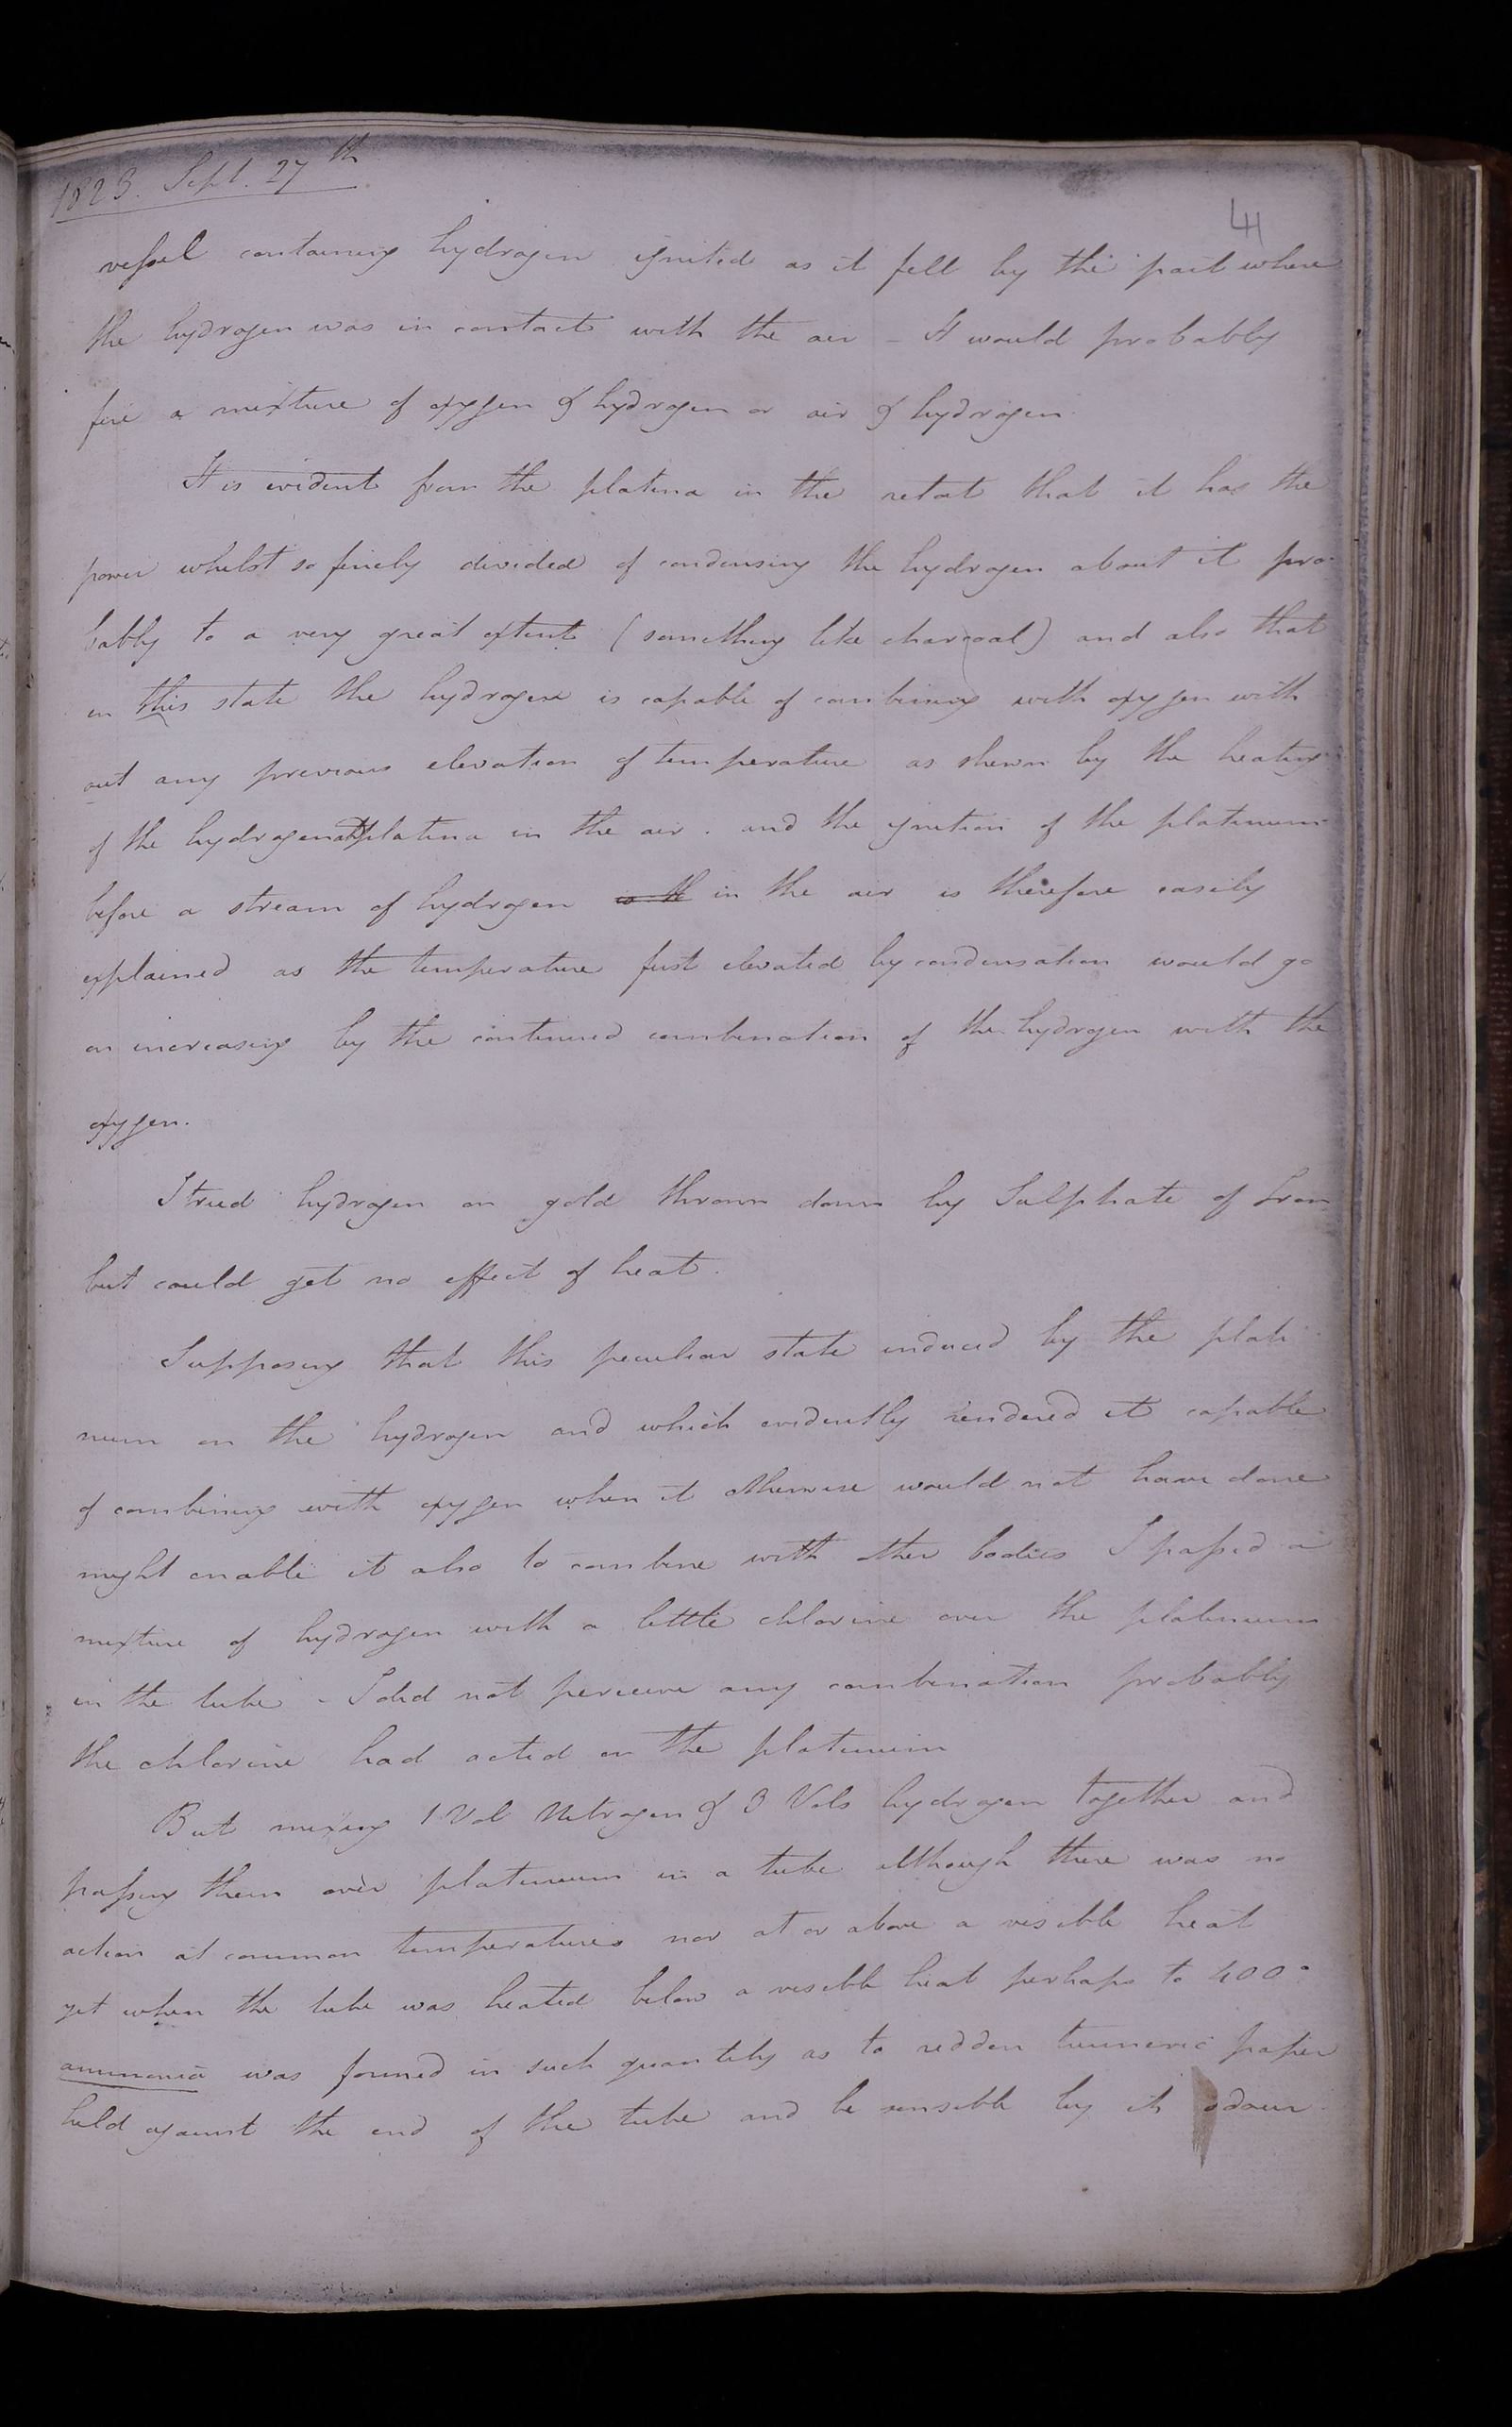 1823. Sept. 27th
41
vessel containing hydrogen ignited as it fell by the part where
the hydrogen was in contact with the air - It would probably
fire a mixture of oxygen & hydrogen or air & hydrogen
It is evident from the platina in the retort that it has the
power whilst so finely divided of condensing the hydrogen about it pro-
bably to a very great extent (something like charcoal) and also that
in this state the hydrogen is capable of combining with oxygen with
out any previous elevation of temperature as shewn by the heating
of the hydrogenated platina in the air. and the ignition of the platinum
before a stream of hydrogen is th in the air is therefore easily
explained as the temperature first elevated by condensation would go
on increasing by the continued combination of the hydrogen with the
oxygen.
I tried hydrogen on gold thrown down by Sulphate of Iron
but could get no effect of heat.
Supposing that this peculiar state induced by the plati
num on the hydrogen and which evidently rendered it capable
of combining with oxygen when it otherwise would not have done
might enable it also to combine with other bodies I passed a
mixture of hydrogen with a little chlorine over the platinum
in the tube - I did not perceive any combination probably
the chlorine had acted on the platinum
But mixing 1 Vol Nitrogen & 3 Vols hydrogen together and
passing them over platinum in a tube although there was no
action at common temperatures nor at or above a visible heat
yet when the tube was heated below a visible heat perhaps to 400°
ammonia was formed in such quantity as to redden turmeric paper
held against the end of the tube and be sensible by its odour